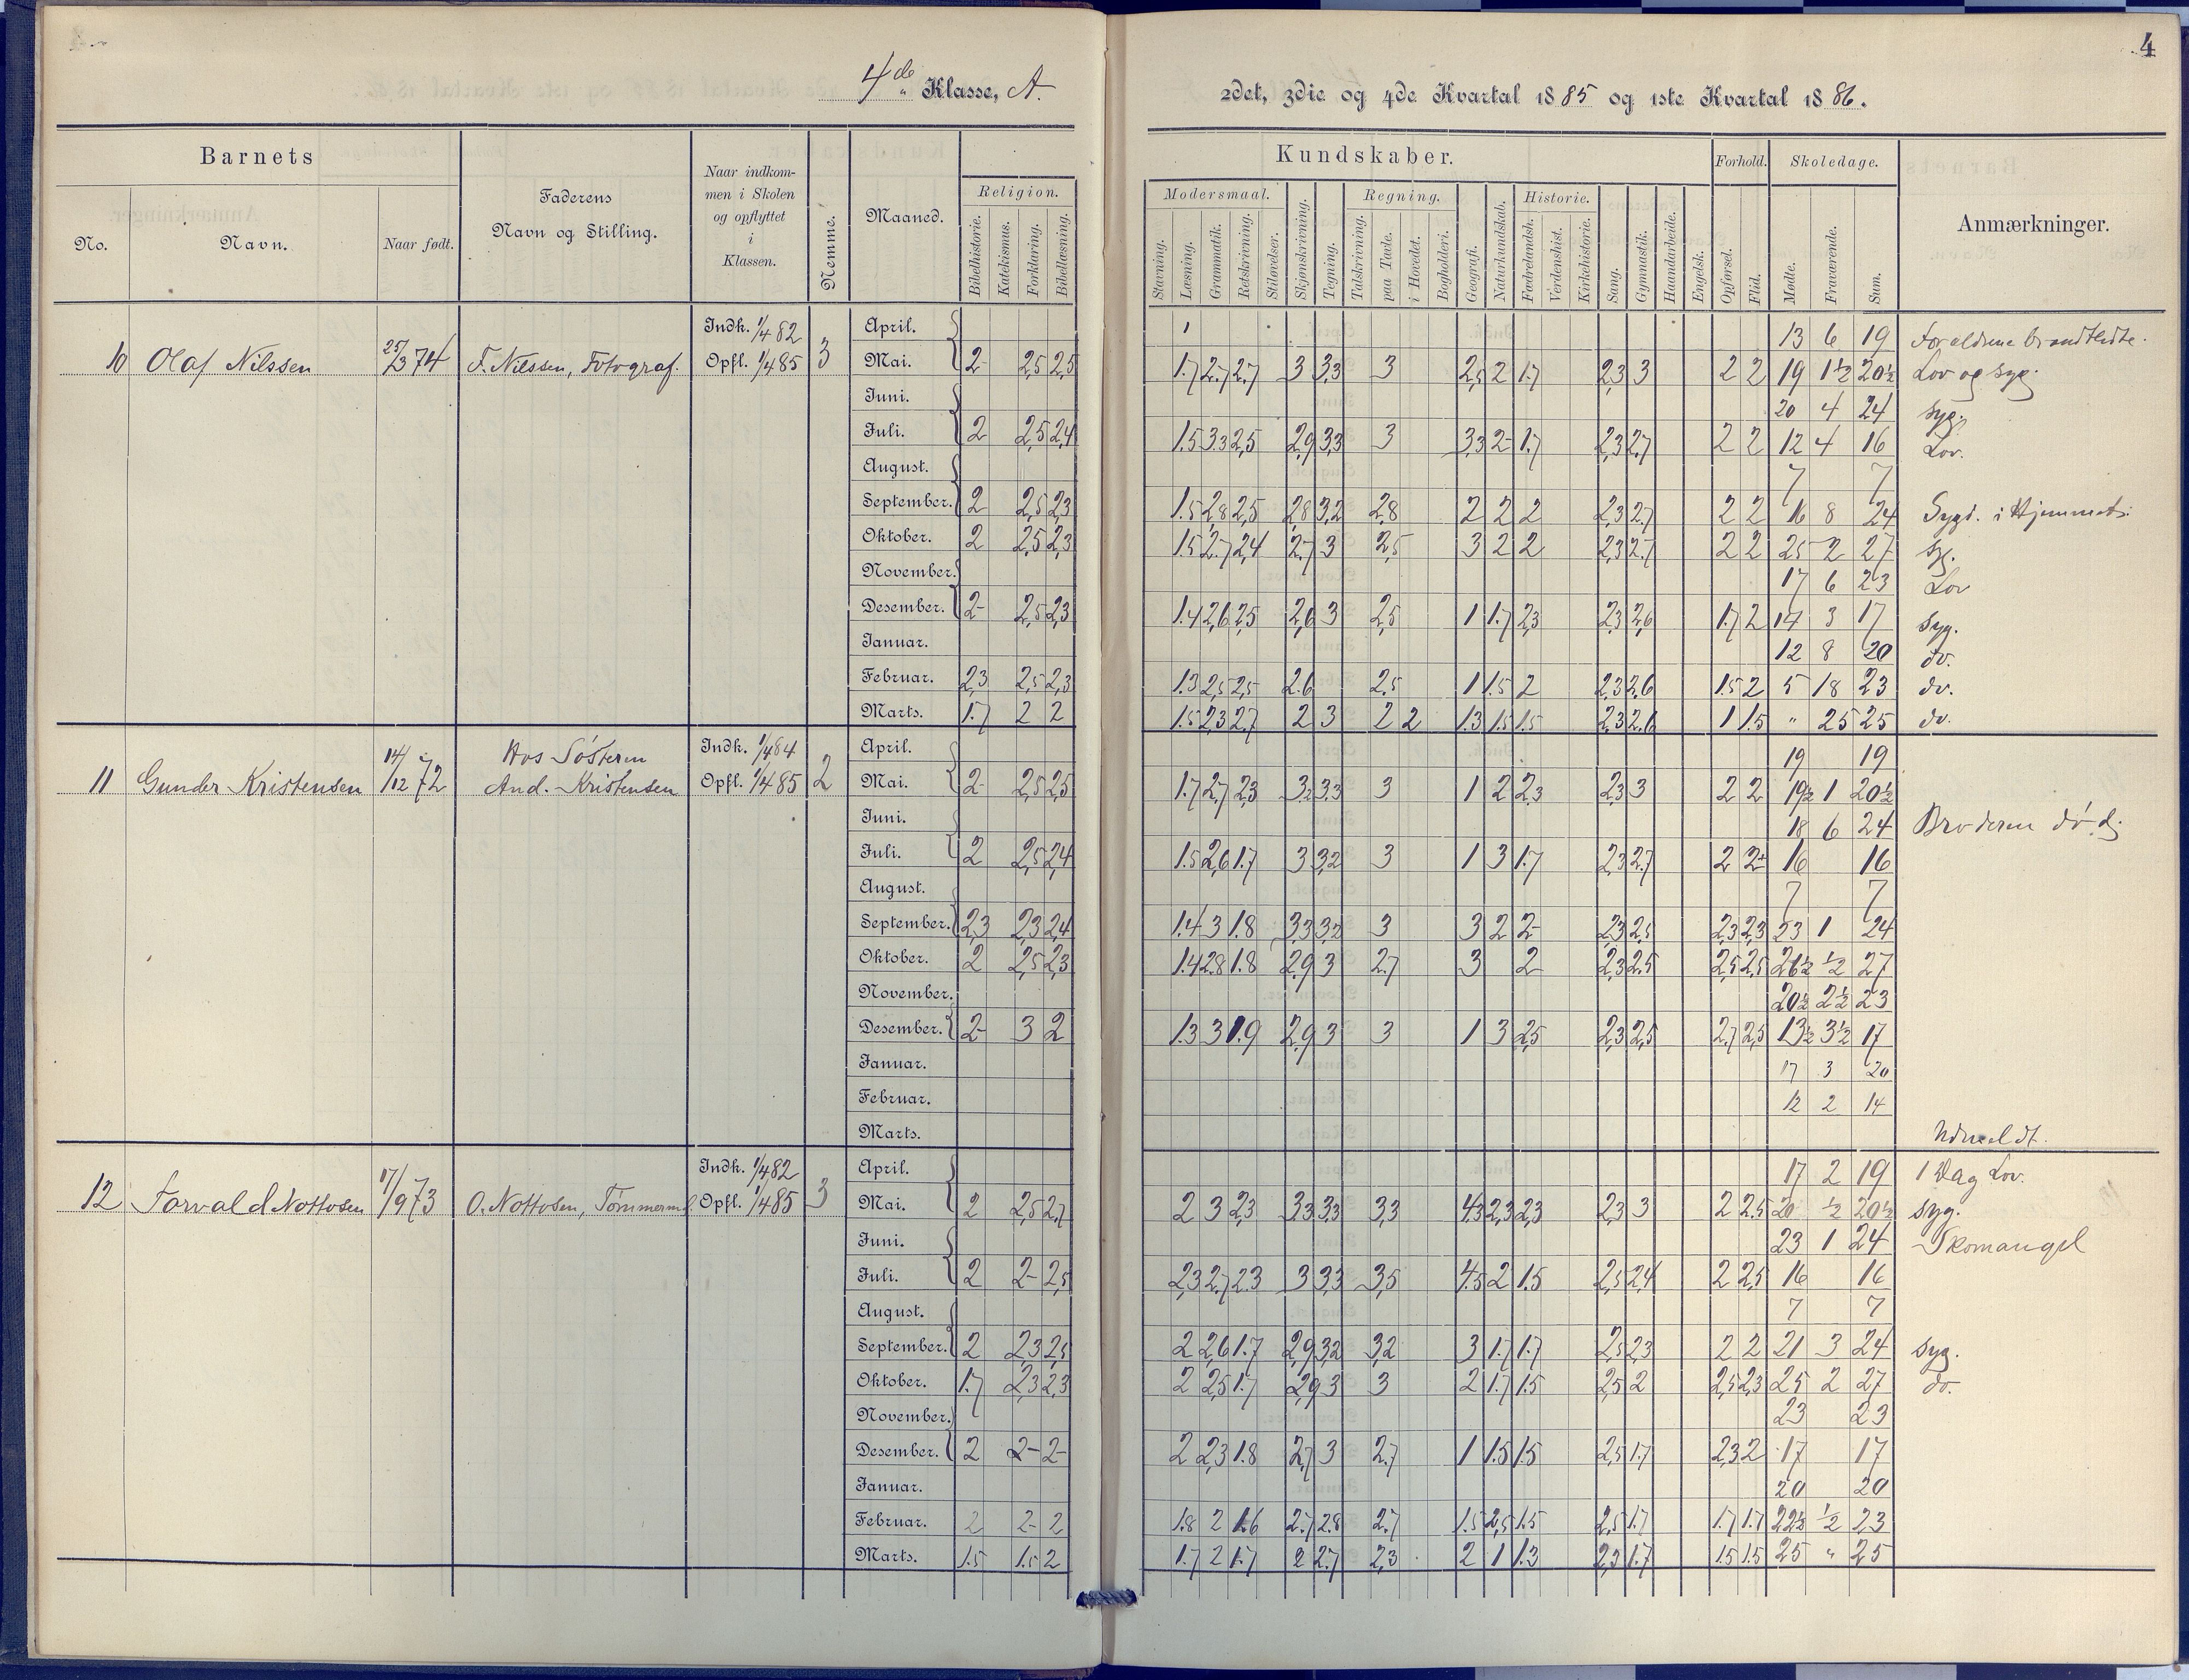 4
4de Klasse, A.
2det, 3die og 4de Kvartal 1885 og 1ste Kvartal 1886.
Barnets
No.
Navn.
Naar født.
Faderens
Navn og Stilling.
Naar indkom-
men i Skolen
og opflyttet
i
Klassen.
Nemme.
Maaned.
Religion.
Bibelhistorie.
Katekismus.
Forklaring.
Bibellæsning.
Kundskaber.
Modersmaal.
Stavning.
Læsning.
Grammatik.
Retskrivning.
Stiløvelser.
Skjønskrivning.
Tegning.
Regning.
Talskrivning.
paa Tavle.
i Hovedet.
Bogholderi.
Geografi.
Naturkundskab.
Historie.
Fædrelandsh.
Verdenshist.
Kirkehistorie.
Sang.
Gymnastik.
Haandarbeide.
Engelsk.
Forhold.
Opførsel.
Flid.
Skoledage.
Mødte.
Fraværende.
Sum.
Anmærkninger.
10 Olaf Nilssen 25/3 74 F. Nilssen, Fotograf. Indk. 1/4 82 Opfl. 1/4 85 3
April. 13 6 19 Forældrene brandtlidte.
Mai. 2- 2,5 2,5 1.7 2.7 2,7 3 3,3 3 2,5 2 1.7 2,3 3 2 2 19 1½ 20½ Lov og syg.
Juni. 20 4 24 syg.
Juli. 2 2,5 2,4 1.5 3.3 2,5 2,9 3,3 3 3,3 2- 1.7 2,3 2.7 2 2 12 4 16 Lov.
August. 7 7
September. 2 2,5 2,3 1.5 2,8 2,5 2,8 3,2 2,8 2 2 2 2,3 2.7 2 2 16 8 24 Sygd. i Hjemmet.
Oktober. 2 2,5 2,3 1.5 2.7 2,4 2.7 3 2,5 3 2 2 2,3 2.7 2 2 25 2 27 syg.
November. 17 6 23 Lov
Desember. 2- 2,5 2,3 1.4 2,6 2,5 2,6 3 2,5 1 1.7 2,3 2,3 2,6 1.7 2 14 3 17 syg.
Januar. 12 8 20 do.
Februar. 2,3 2,5 2,3 1.3 2,5 2,5 2.6 2.5 1 1.5 2 2,3 2,6 1.5 2 5 18 23 do.
Marts. 1.7 2 2 1.5 2,3 2.7 2 3 2 2 1.3 1.5 1.5 2,3 2.6 1 1.5 " 25 25 do.
11 Gunder Kristensen 14/12 72 Hos Søsteren And. Kristensen Indk. 1/4 84 Opfl. 1/4 85 2
April. 19 19
Mai. 2- 2,5 2,5 1.7 2,7 2,3 3.2 3.3 3 1 2 2,3 2,3 3 2 2 19½ 1 20½
Juni. 18 6 24 Broderen død.
Juli. 2 2,5 2,4 1.5 2,6 1.7 3 3,2 3 1 3 1.7 2,3 2.7 2 2+ 16 16
August. 7 7
September. 2,3 2,3 2,4 1.4 3 1.8 3,3 3,2 3 3 2 2- 2,3 2,5 2,3 2,3 23 1 24
Oktober. 2 2,5 2,3 1.4 2.8 1.8 2,9 3 2.7 3 2 2,3 2.5 2,5 2,5 26½ ½ 27
November. 20½ 2½ 23
Desember. 2- 3 2 1.3 3 1.9 2.9 3 3 1 3 2,5 2,3 2,5 2.7 2,5 13½ 3½ 17
Januar. 17 3 20
Februar. 12 2 14
Marts. Udmeldt.
12 Torvald Nottosen 17/9 73 O. Nottosen, Tømmerm. Indk. 1/4 82 Opfl. 1/4 85 3
April. 17 2 19 1 Dag Lov.
Mai. 2 2,5 2,7 2 3 2,3 3,3 3,3 3,3 4,3 2,3 2,3 2,3 3 2 2.5 20 ½ 20½ syg.
Juni. 23 1 24 Skomangel
Juli. 2 2- 2,5 2,3 2.7 2.3 3 3,3 3,5 4.5 2 1.5 2,5 2,4 2 2,5 16 16
August. 7 7
September. 2 2,3 2,5 2 2,6 1.7 2,9 3,2 3,2 3 1.7 1.7 2,5 2,3 2 2 21 3 24 syg.
Oktober. 1.7 2,3 2,3 2 2,5 1.7 2,9 3 3 2 1.7 1.5 2,5 2 2,5 2,3 25 2 27 do.
November. 23 23
Desember. 2 2- 2- 2 2,3 1.8 2,7 3 2.7 1 1.5 1.5 2,5 1.7 2,3 2 17 17
Januar. 20 20
Februar. 2 2- 2 1.8 2 1.6 2.7 2.8 2.7 1.5 2,5 1.5 2,5 1.7 1.7 1.7 22½ ½ 23
Marts. 1.5 1.5 2 1.7 2 1.7 2 2.7 2,3 2 1 1.3 2,3 1.7 1.5 1.5 25 " 25